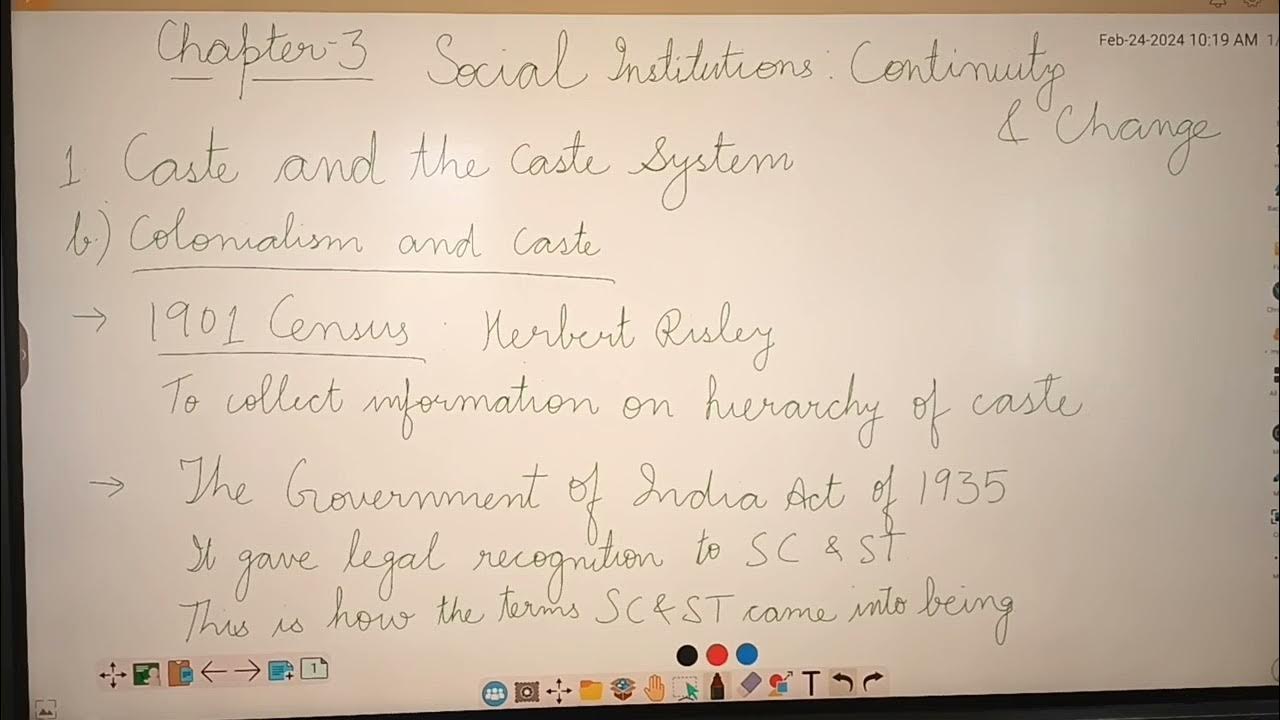 Chapter-3 Social Institutions: Continuity
& Change
Feb-24-2024 10:19 AM
1. Caste and the Caste System
b.) Colonialism and Caste
→ 1901 Census. Herbert Risley
To collect information on hierarchy of caste
→ The Government of India Act of 1935
It gave legal recognition to SC & ST
This is how the terms SC & ST came into being
1
T